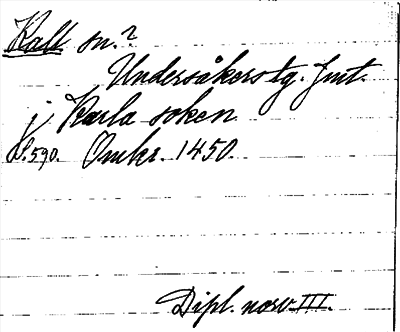 Kall sn.?
Undersåkers tg. Jmt.
j Karla soken
S. 590. Omkr. 1450.
Dipl. norv III.